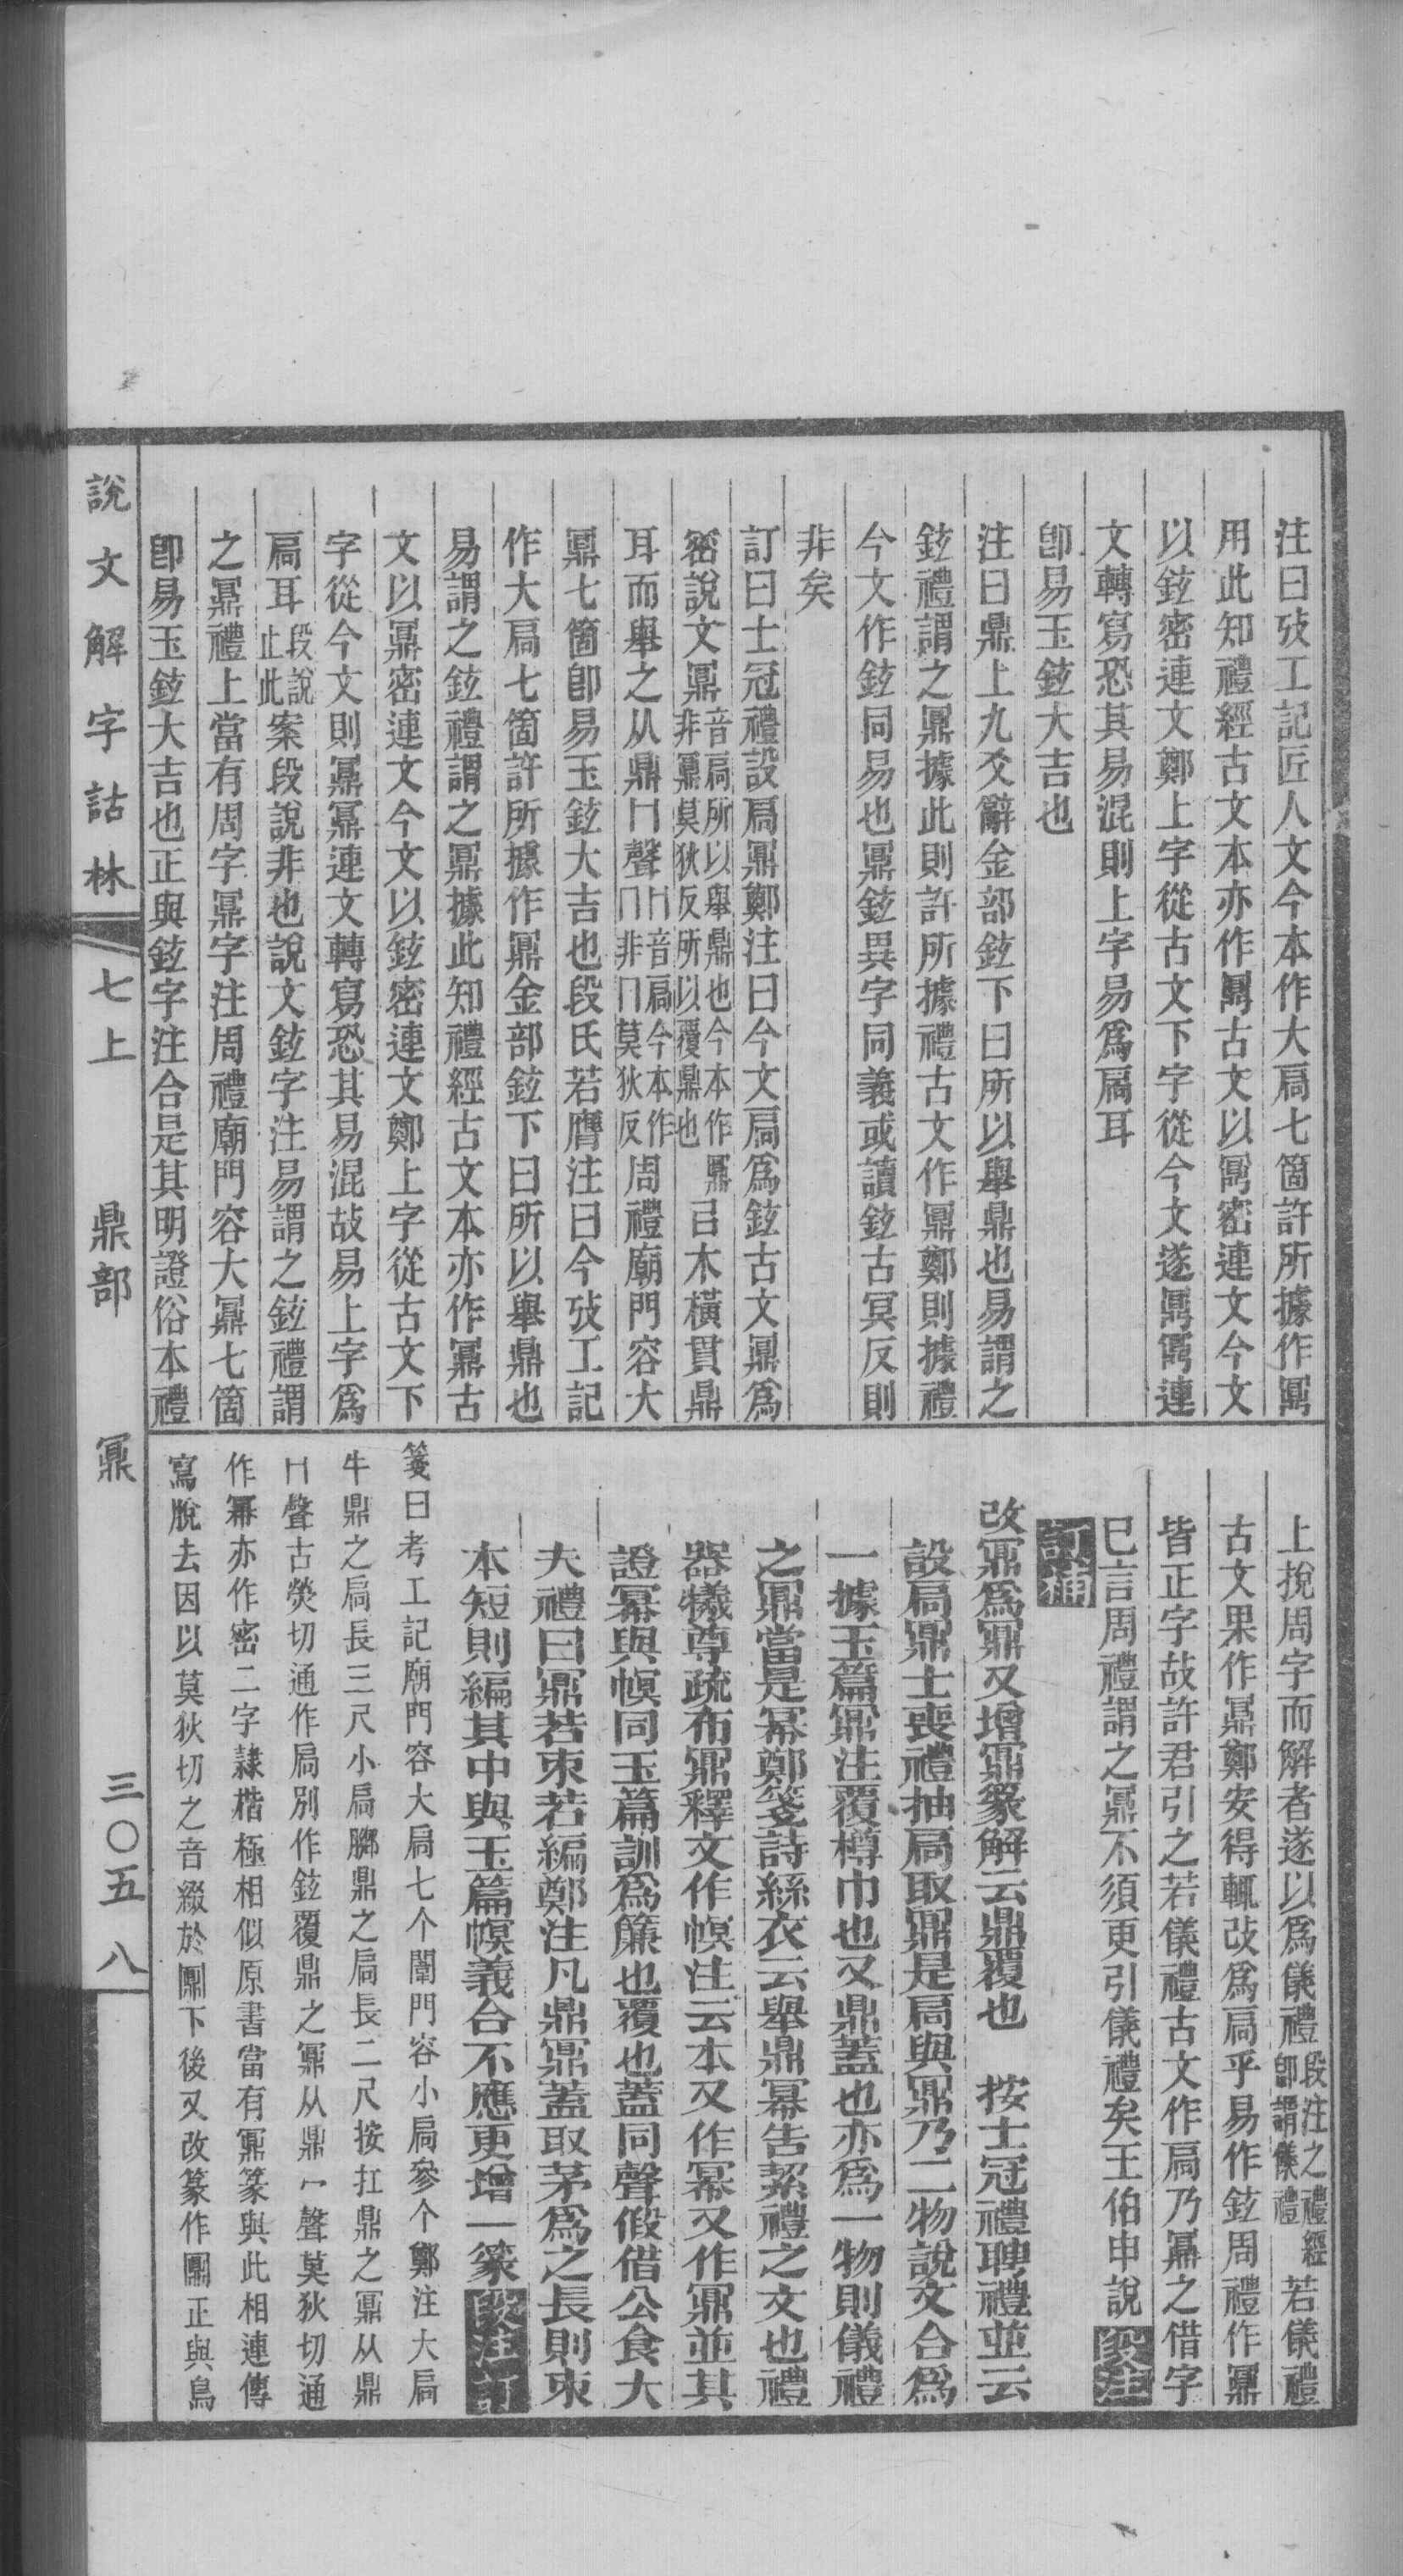 注曰攷工記匠人文今本作大扃七箇許所據作鼏
用此知禮經古文本亦作鼏古文以鼏密連文今文
以鉉密連文鄭上字從古文下字從今文遂鼏鼏連
文轉寫恐其易混則上字易爲扃耳
卽易玉鉉大吉也
注曰鼎上九爻辭金部鉉下曰所以舉鼎也易謂之
鉉禮謂之鼏據此則許所據禮古文作鼏鄭則據禮
今文作鉉同易也鼏鉉異字同義或讀鉉古冥反則
非矣
訂曰士冠禮設扃鼏鄭注曰今文扃爲鉉古文鼏爲
密說文鼏音扃所以舉鼎也今本作鼏非鼏莫狄反所以覆鼎也㠯木橫貫鼎
耳而舉之从鼎冂聲冂音扃今本作冂非冂莫狄反周禮廟門容大
鼏七箇卽易玉鉉大吉也段氏若膺注曰今攷工記
作大扃七箇許所據作鼏金部鉉下曰所以舉鼎也
易謂之鉉禮謂之鼏據此知禮經古文本亦作鼏古
文以鼏密連文今文以鉉密連文鄭上字從古文下
字從今文則鼏鼏連文轉寫恐其易混故易上字爲
扃耳段說止此案段說非也說文鉉字注易謂之鉉禮謂
之鼏禮上當有周字鼏字注周禮廟門容大鼏七箇
卽易玉鉉大吉也正與鉉字注合是其明證俗本禮
上挩周字而解者遂以爲儀禮段注之禮經卽謂儀禮若儀禮
古文果作鼏鄭安得輒改爲扃乎易作鉉周禮作鼏
皆正字故許君引之若儀禮古文作扃乃鼏之借字
巳言周禮謂之鼏不須更引儀禮矣王伯申說 段注
訂補
改鼏爲鼏又增鼏篆解云鼎覆也 按士冠禮聘禮並云
設扃鼎士喪禮抽扃取鼎是扃與鼏乃二物說文合爲
一據玉篇鼏注覆樽巾也又鼎蓋也亦爲一物則儀禮
之鼏當是冪鄭箋詩絲衣云舉鼎冪告絜禮之文也禮
器犧尊疏布鼏釋文作幎注云本又作冪又作鼏並其
證冪與幎同玉篇訓爲簾也覆也蓋同聲假借公食大
夫禮曰鼏若束若編鄭注凡鼎鼏蓋取茅爲之長則束
本短則編其中與玉篇幎義合不應更增一篆 段注訂
箋曰考工記廟門容大扃七个闈門容小扃參个鄭注大扃
牛鼎之扃長三尺小扃膷鼎之扃長二尺按扛鼎之鼏从鼎
冂聲古熒切通作扃別作鉉覆鼎之鼏从鼎冖聲莫狄切通
作冪亦作密二字隷楷極相似原書當有鼏篆與此相連傳
寫脫去因以莫狄切之音綴於鼏下後又改篆作鼏正與鳥
說文解字詁林 七上 鼎部 鼏 三〇五八